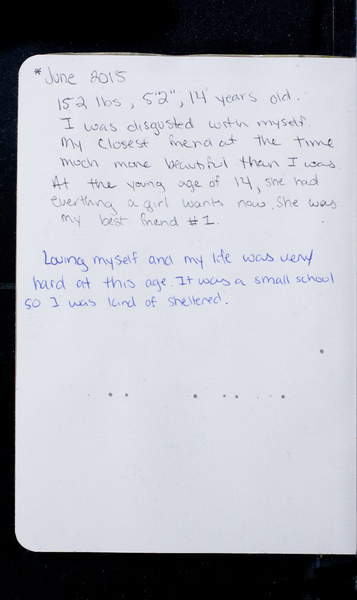 * June 2015
152 lbs, 5'2", 14 years old.
I was disgusted with myself.
My closest friend at the time
much more beautiful than I was.
At the young age of 14, she had
everthing a girl wants now. She was
my best friend #1.
Loving myself and my life was very
hard at this age. It was a small school
so I was kind of sheltered.